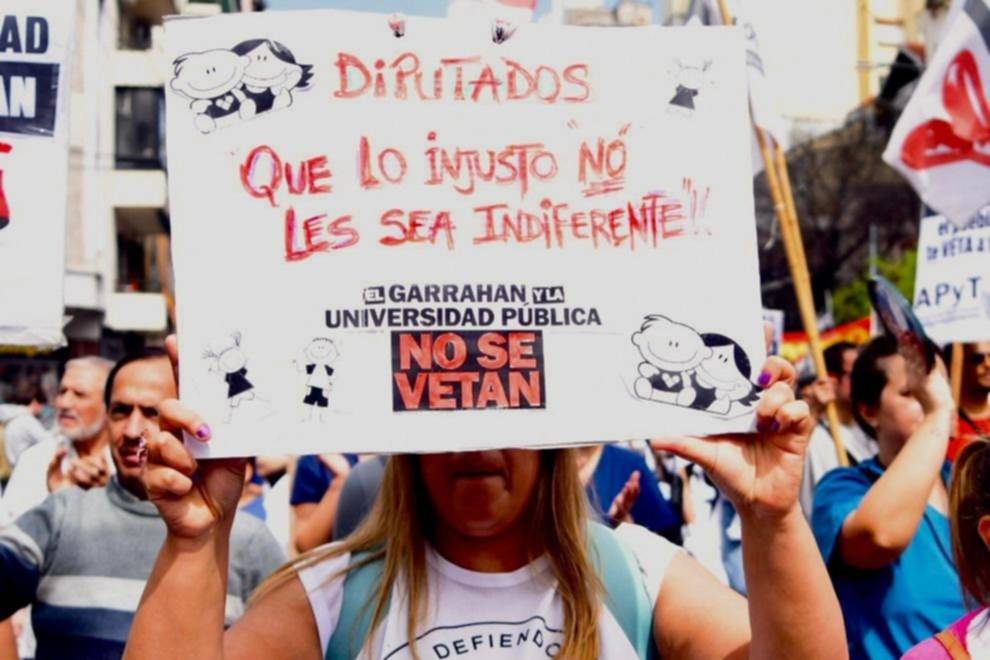 AD
AN
DiPUTADOS
QUE LO iNJUSTO "NO"
LES SEA INDIFERENTE"!!
EL GARRAHAN Y LA
UNIVERSIDAD PÚBLICA
NO SE
VETAN
DEFIENDO
el pueblo
te VETA a
APyT